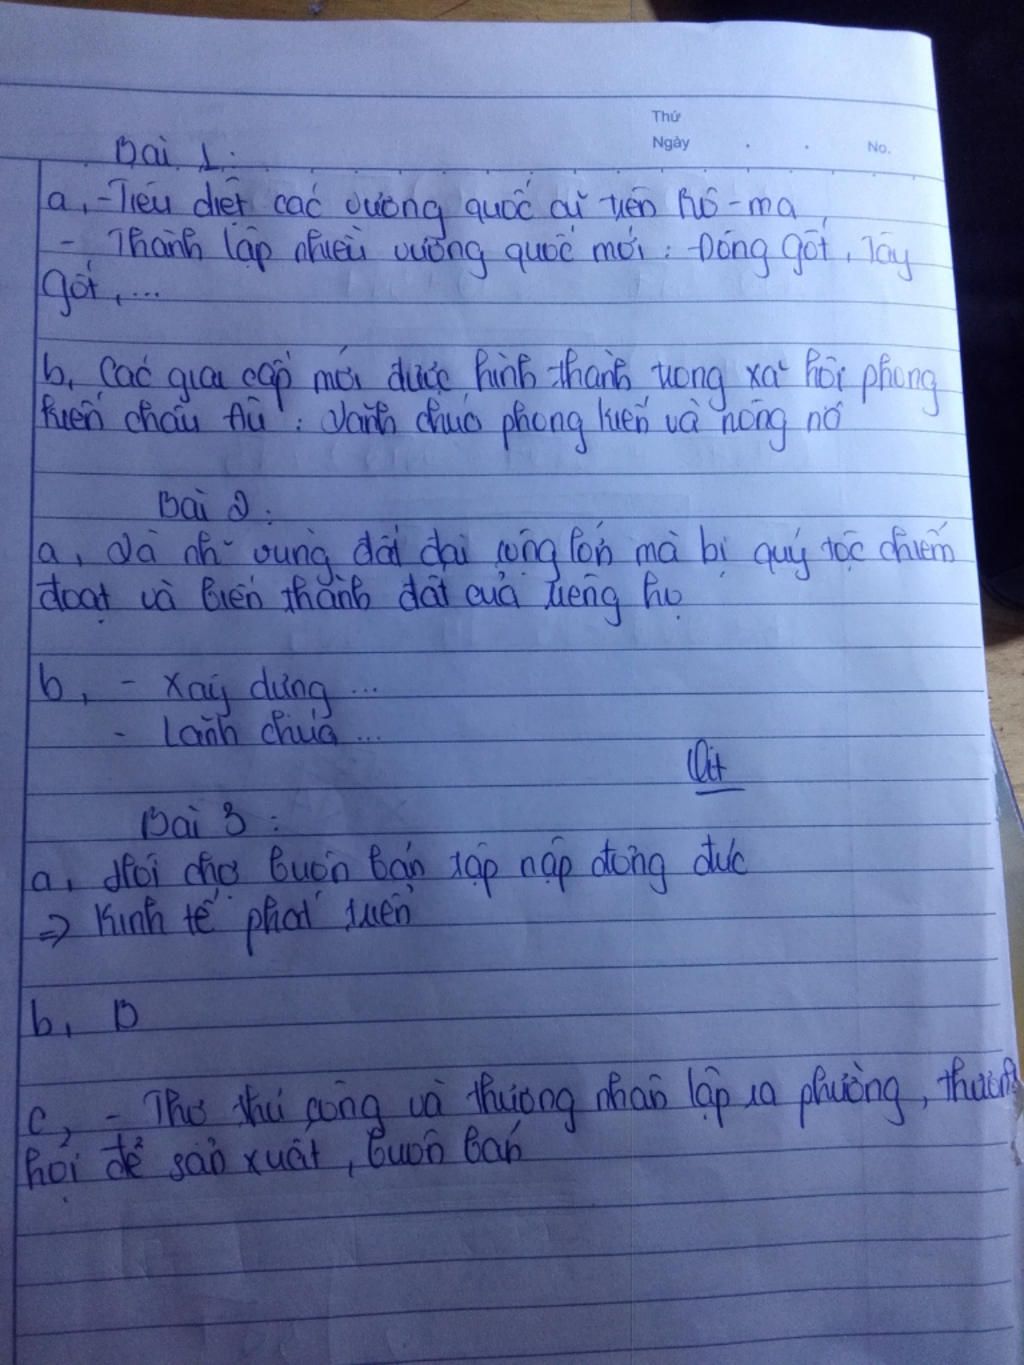 Thứ
Ngày . . No.
Bài 1:
a, - Tiêu diệt các vương quốc cũ trên Rô-ma
- Thành lập nhiều vương quốc mới: Đông gốt, Tây
gốt, ...
b, Các giai cấp mới được hình thành trong xã hội phong
kiến châu Âu: Lãnh chúa phong kiến và nông nô
Bài 2:
a, Là nh~ vùng đất đai rộng lớn mà bị quý tộc chiếm
đoạt và biến thành đất của riêng họ
b, - Xây dựng ...
- Lãnh chúa ...
Bài 3:
a, Hội chợ buôn bán tấp nập đông đúc
=> Kinh tế phát triển
b, B
c, - Thợ thủ công và thương nhân lập ra phường, thương
hội để sản xuất, buôn bán